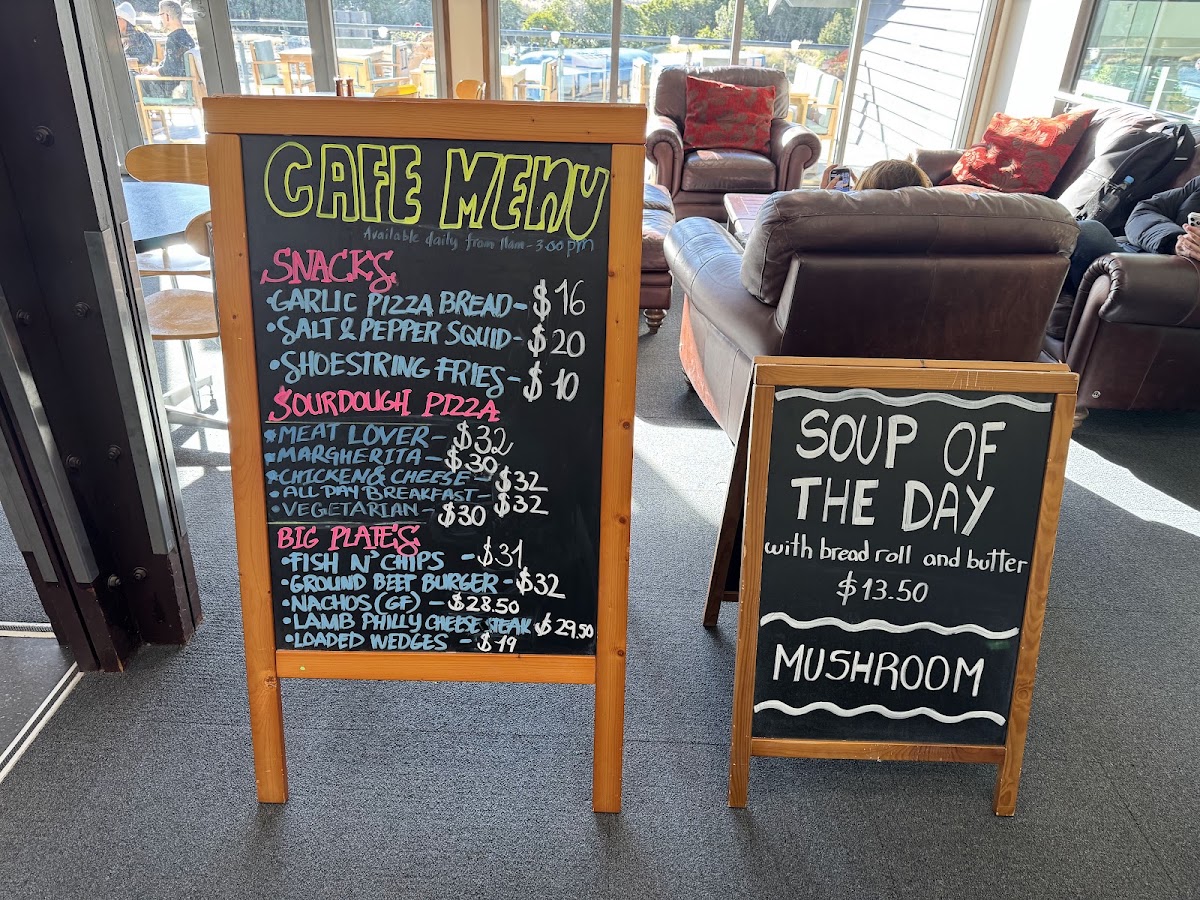 CAFE MENU
Available daily from 11am - 3:00pm
SNACKS
•GARLIC PIZZA BREAD- $16
•SALT & PEPPER SQUID- $20
•SHOESTRING FRIES- $10
SOURDOUGH PIZZA
•MEAT LOVER- $32
•MARGHERITA- $30
•CHICKEN & CHEESE- $32
•ALL DAY BREAKFAST- $32
•VEGETARIAN- $30
BIG PLATES
•FISH N' CHIPS - $31
•GROUND BEEF BURGER- $32
•NACHOS (GF) - $28.50
•LAMB PHILLY CHEESE STEAK $29.50
•LOADED WEDGES - $19
SOUP OF
THE DAY
with bread roll and butter
$13.50
MUSHROOM